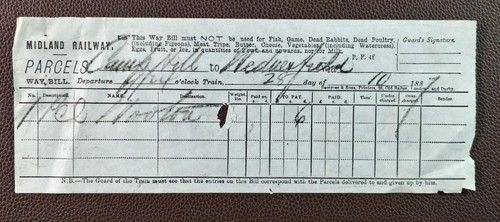 For This Way Bill must NOT be used for Fish, Game, Dead Rabbits, Dead Poultry,
MIDLAND RAILWAY. (including Pigeons), Meat, Tripe, Butter, Cheese, Vegetables (including Watercress),
Eggs, Fruit, or Ice, in quantities of 1cwt and upwards, nor for Milk.
Guard's Signature.
P. F. 46
PARCELS Camp Hill TO Wednesfield
WAY BILL. Departure o'clock Train, 28 day of 10 1887
No. Description. Destination. Weight. Paid on. TO PAY. PAID. Thro'. Under-charged Over-charged Sender.
1 Pcl 6
N.B.—The Guard of the Train must see that the entries on this Bill correspond with the Parcels delivered to and given up by him.